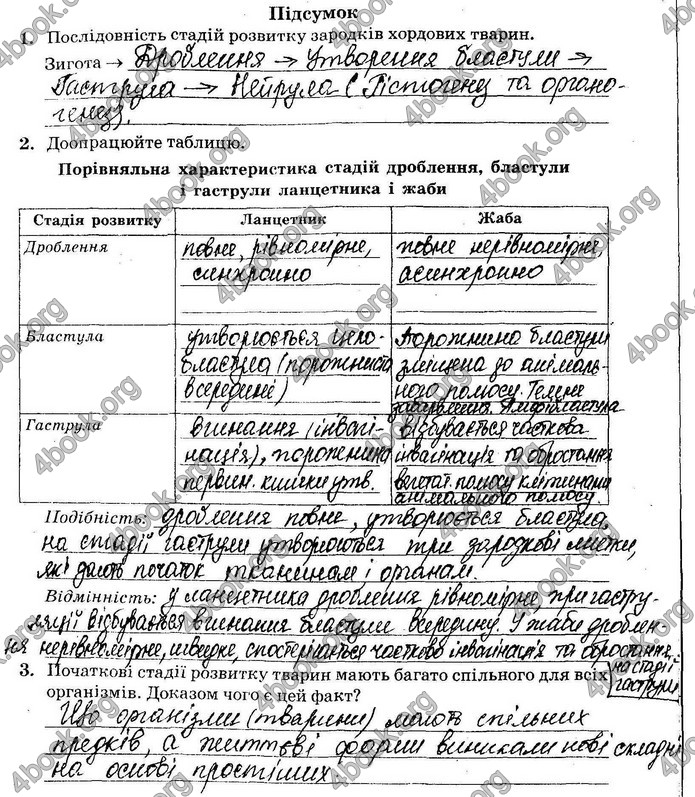 Підсумок
1. Послідовність стадій розвитку зародків хордових тварин.
Зигота → Дроблення → Утворення бластули →
Гаструла → Нейрула (Гістогенез та органо-
генез).
2. Доопрацюйте таблицю.
Порівняльна характеристика стадій дроблення, бластули
і гаструли ланцетника і жаби
Стадія розвитку Ланцетник Жаба
Дроблення
повне, рівномірне,
синхронно
повне нерівномірне,
асинхронно
Бластула
утворюється цело-
бластула (порожниста
всередині)
Порожнина бластули
зміщена до анімаль-
ного полюсу. Темне
забарвлення. Амфібластула
Гаструла
вгинання (інвагі-
нація), порожнина
первин. кишки утв.
відбувається часткова
інвагінація та обростання
вегетат. полюсу клітинами
анімального полюсу
Подібність: дроблення повне, утворюється бластула
на стадії гаструли утворюються три зародкові листки,
які дають початок тканинам і органам.
Відмінність: у ланцетника дроблення рівномірне при гастру-
ляції відбувається вгинання бластули всередину. У жаби дроблен-
ня нерівномірне, швидке, спостерігається часткова інвагінація та обростання
на стадії
гаструли
3. Початкові стадії розвитку тварин мають багато спільного для всіх
організмів. Доказом чого є цей факт?
Що організми (тварини) мають спільних
предків, а життєві форми виникали нові складні
на основі простіших
4book.org